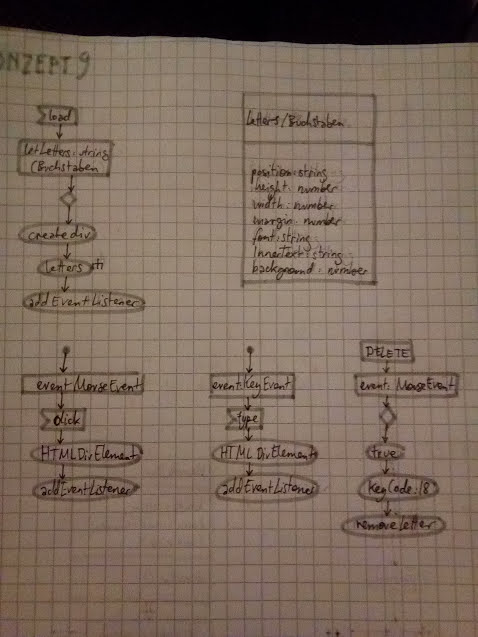 ONZEPT 9
load
let Letters: string
(Buchstaben
create div
letters
addEventListener
Letters/Buchstaben
position: string
height: number
width: number
margin: number
font: string
InnerText: string
background: number
event:MouseEvent
click
HTMLDivElement
addEventListener
event:KeyEvent
type
HTMLDivElement
addEventListener
DELETE
event: MouseEvent
true
KeyCode: 18
remove letter